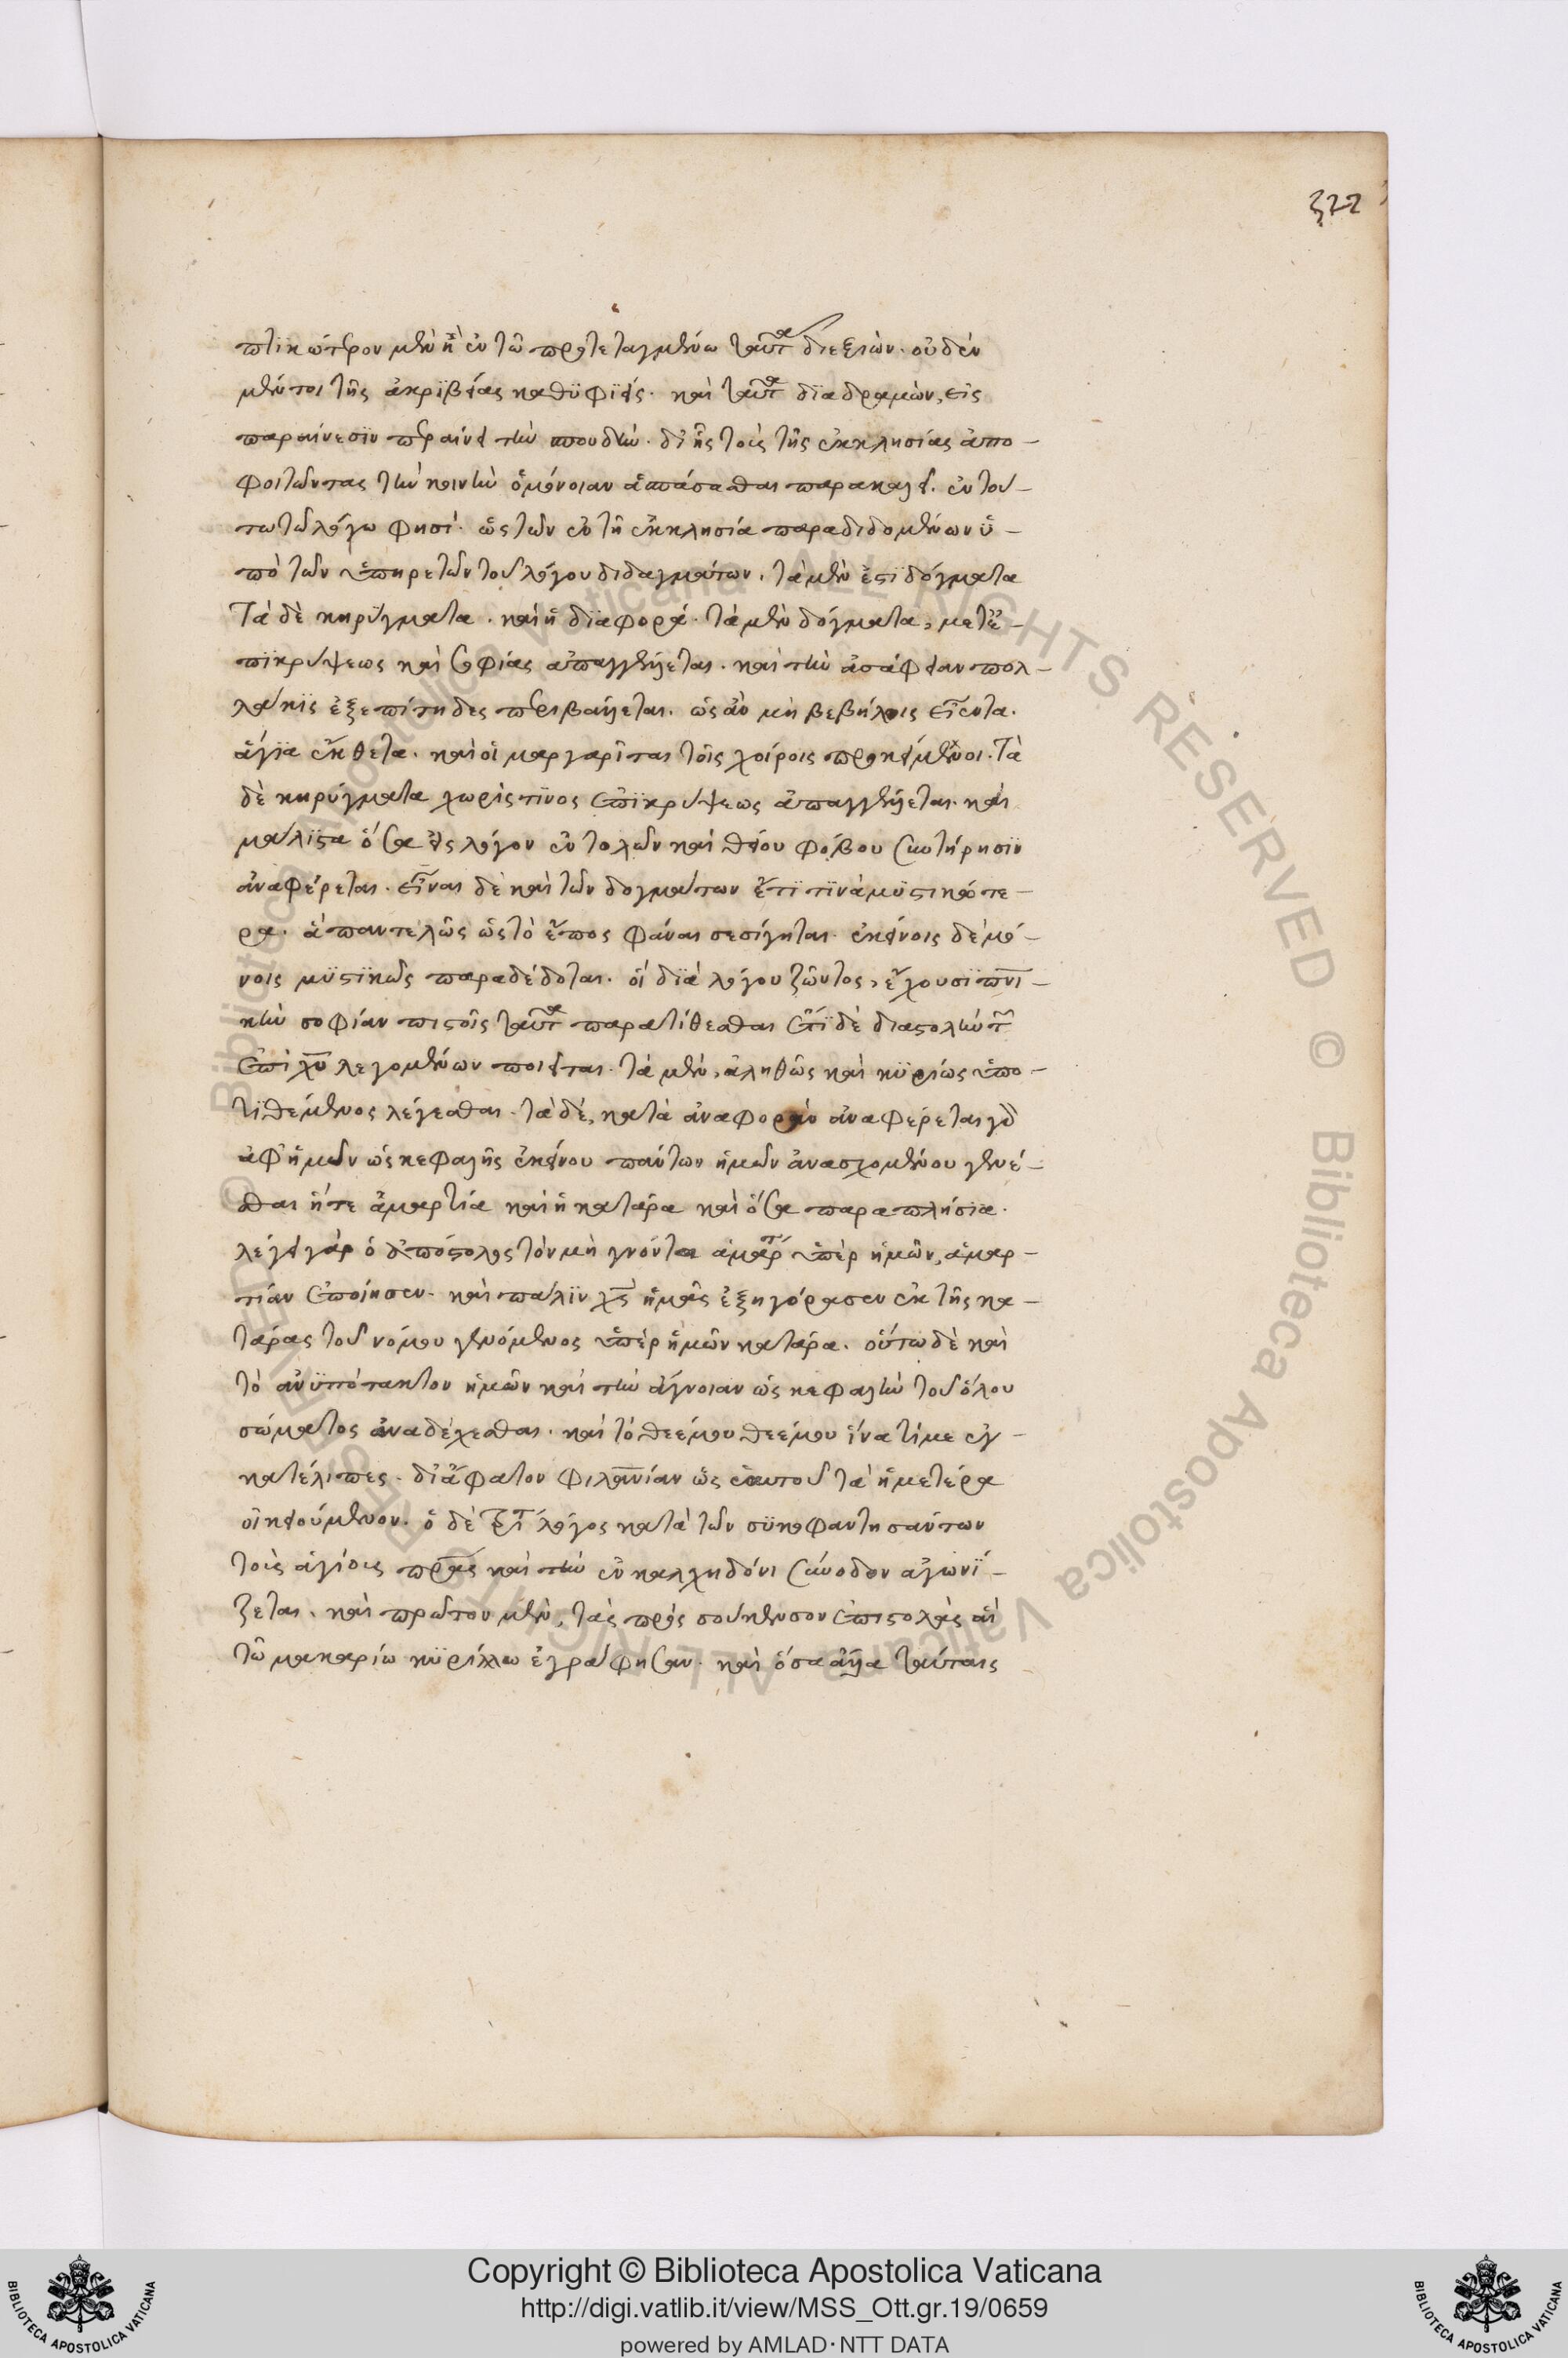 322
πτικώτερον μὲν ἢ ἐν τῶ προτεταγμένω ταῦτα διεξιών. οὐδὲν
μέντοι τῆς ἀκριβείας καθϋφϊείς. καὶ ταῦτα δϊαδραμὼν, εἰς
παραίνεσϊν περαίνει τὴν σπουδήν. δι ἧς τοὺς τῆς ἐκκλησίας ἀπο-
φοιτῶντας τὴν κοινὴν ὁμόνοιαν ἀσπάσασθαι παρακαλεῖ. ἐν τού-
τω τῶ λόγω φησί. ὡς τῶν ἐν τῆ ἐκκλησία παραδιδομένων ὑ-
πὸ τῶν ὑπηρετῶν τοῦ λόγου διδαγμάτων, τὰ μὲν ἐστϊ δόγματα
Τὰ δὲ κηρύγματα. καὶ ἡ δϊαφορά. τὰ μὲν δόγματα, μετ ἐ-
πϊκρύψεως καὶ σοφίας ἀπαγγέλλεται. καὶ τὴν ἀσάφειαν πολ-
λάκϊς ἐξεπίτηδες περιβάλλεται. ὡς ἂν μὴ βεβήλοις εἶεν τὰ
ἅγϊα ἔκθετα. καὶ οἱ μαργαρῖται τοῖς χοίροις προκείμενοι. Τὰ
δὲ κηρύγματα χωρίς τϊνος ἐπϊκρύψεως ἀπαγγέλλεται. καὶ
μάλϊστα ὅσα εἰς λόγον ἐντολῶν καὶ θείου φόβου συντήρησϊν
ἀναφέρεται. εἶναι δὲ καὶ τῶν δογμάτων ἔτϊ τϊνὰ μϋστικώτε-
ρα. ἃ παντελῶς ὡς τὸ ἔπος φάναι σεσίγηται. ἐκείνοις δὲ μό-
νοις μϋστϊκῶς παραδέδοται. οἳ δϊὰ λόγου ζῶντος, ἔχουσϊ πνι-
κὴν σοφίαν πιστοῖς ταῦτα παρατίθεσθαι ἔτϊ δὲ διαστολὴν τῶν
ἐπὶ χυ λεγομένων ποιεῖται. τὰ μὲν, ἀληθῶς καὶ κϋρίως ὑπο-
τϊθέμενος λέγεσθαι. τὰ δὲ, κατὰ ἀναφορὰν ἀναφέρεται γὰρ
ἀφ ἡμῶν ὡς κεφαλῆς ἐκείνου πάντων ἡμῶν ἀνασχομένου γενέ-
σθαι ἥ τε ἁμαρτία καὶ ἡ κατάρα καὶ ὅσα παραπλήσια.
λέγει γὰρ ὁ ἀπόστολος τὸν μὴ γνόντα ἁμαρτ ὑπὲρ ἡμῶν, ἁμαρ-
τίαν ἐποίησεν. καὶ πάλϊν χς ἡμᾶς ἐξηγόρασεν ἐκ τῆς κα-
τάρας τοῦ νόμου γενόμενος ὑπὲρ ἡμῶν κατάρα. οὕτω δὲ καὶ
τὸ ἀνϋπότακτον ἡμῶν καὶ τὴν ἄγνοιαν ὡς κεφαλὴν τοῦ ὅλου
σώματος ἀναδέχεσθαι. καὶ τὸ θεέ μου θεέ μου ἵνα τί με ἐγ-
κατέλιπες. δι ἄφατον φιλανίαν ὡς ἑαυτοῦ τὰ ἡμετέρα
οἰκειούμενον. ὁ δὲ λόγος κατὰ τῶν σϋκοφαντησάντων
τοὺς ἁγίους πρας καὶ τὴν ἐν καλχηδόνι σύνοδον ἀγωνί-
ζεται. καὶ πρῶτον μὲν, τὰς πρὸς σούκενσον ἐπιστολὰς αἳ
τῶ μακαρίω κϋρίλλω ἐγράφησαν. καὶ ὅσα ἄλλα ταύταις
Copyright © Biblioteca Apostolica Vaticana
http://digi.vatlib.it/view/MSS_Ott.gr.19/0659
powered by AMLAD·NTT DATA